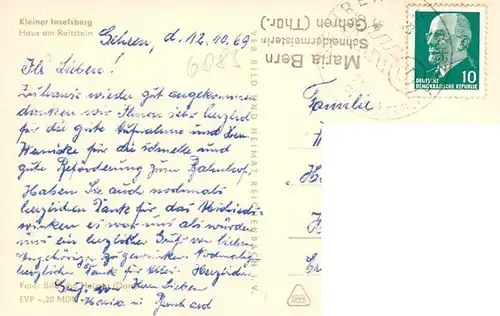 Kleiner Inselsberg
Haus am Reitstein
Gehren, d. 12.10.69
6083
Ihr Lieben!
Zuhause wieder gut angekommen
danken wir Ihnen sehr herzlich
für die gute Aufnahme und Herrn
für die schnelle und
gute Beförderung zum Bahnhof.
Haben Sie auch nochmals
herzlichen Dank für das
winken es war uns als würden
uns ein herzlicher Gruß von lieben
Angehörigen zu
herzlichen Dank für alles. Herzliche
Grüße von Ihren Lieben
Foto: Bild
EVP -,20 MDN
BILD UND HEIMAT REICHENBACH I. V.
Maria Bern
Schneidermeisterin
Gehren (Thür.)
DEUTSCHE
DEMOKRATISCHE REPUBLIK
10
Familie